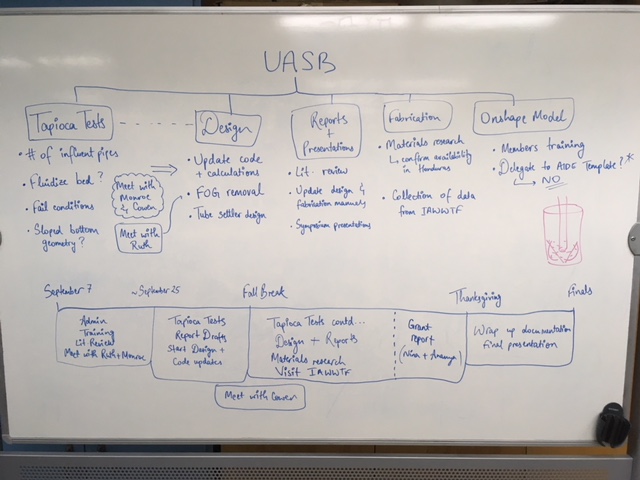 UASB
Tapioca Tests
• # of influent pipes
• Fluidize bed?
• Fail conditions
• Sloped bottom
geometry?
Meet with
Monroe
& Cowen
Meet with
Ruth
Design
• Update code
+ calculations
• FOG removal
• Tube settler design
Reports
+
Presentations
• Lit. review
• Update design &
fabrication manuals
• Symposium presentations
Fabrication
• Materials research
↳ confirm availability
in Honduras
• Collection of data
from IAWWTF
Onshape Model
• Members training
• Delegate to AIDE Template? *
↳ NO
September 7
~September 25
Fall Break
Thanksgiving
Finals
Admin
Training
Lit Review
Meet with Ruth + Monroe
Tapioca Tests
Report Drafts
Start Design +
Code updates
Tapioca Tests contd...
Design + Reports
Materials research
Visit IAWWTF
Grant
report
(Nina + Ananya)
Wrap up documentation
Final presentation
Meet with Cowen